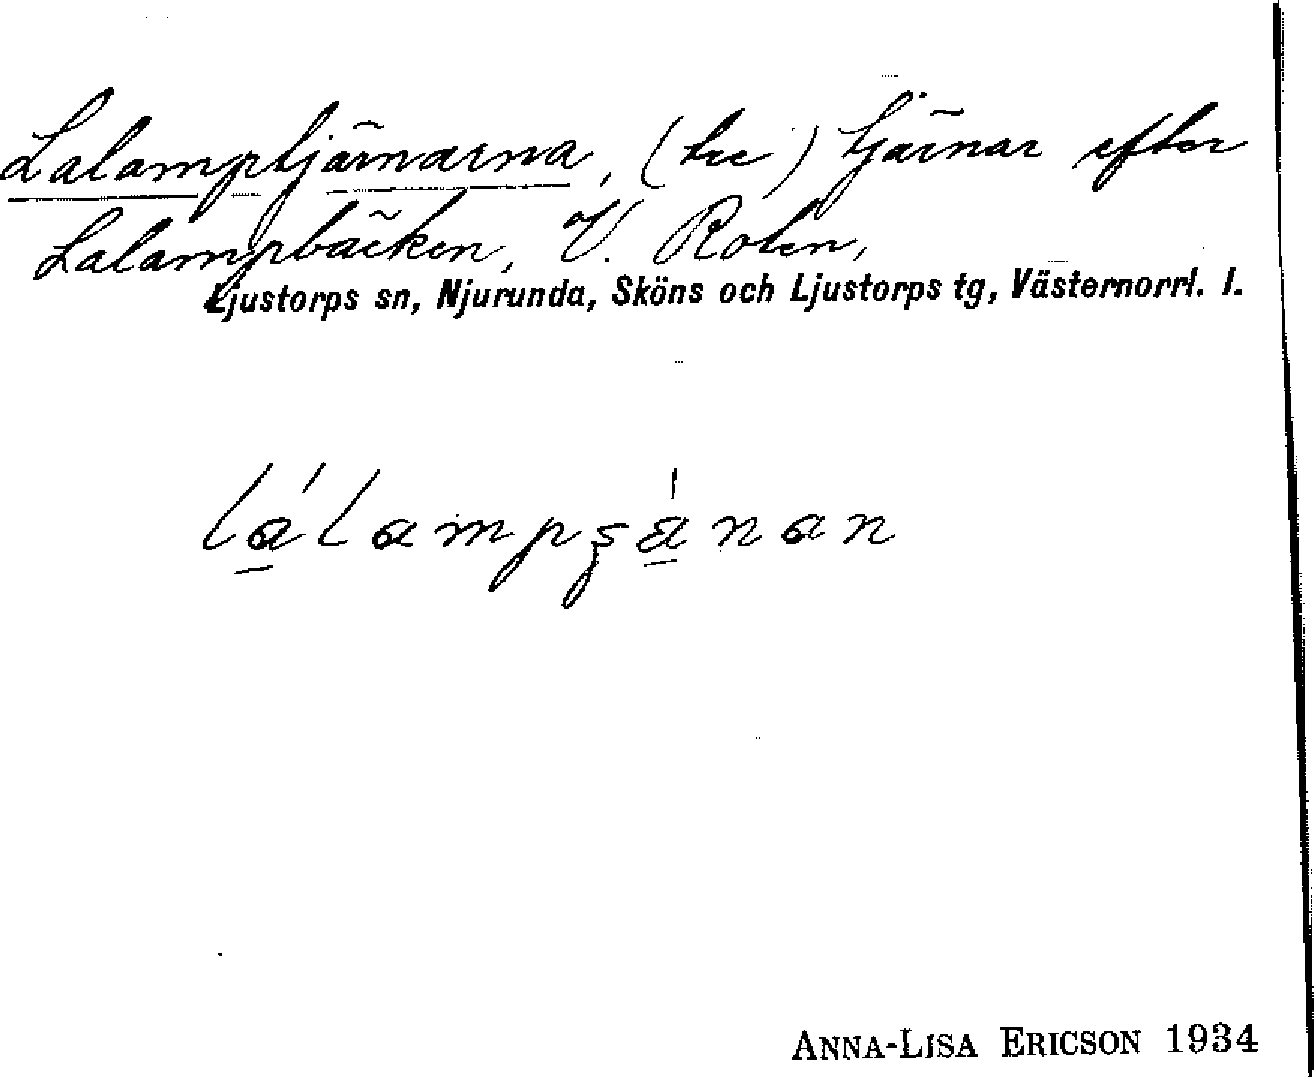 Lalamptjärnarna, (tre) tjärnar efter
Lalampbäcken, V. Roten,
Ljustorps sn, Njurunda, Sköns och Ljustorps tg, Västernorrl. l.
lálampʂánan
ANNA-LISA ERICSON 1934